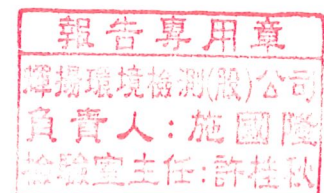 報告專用章
輝揚環境檢測(股)公司
負責人:施國隆
檢驗室主任:許桂秋